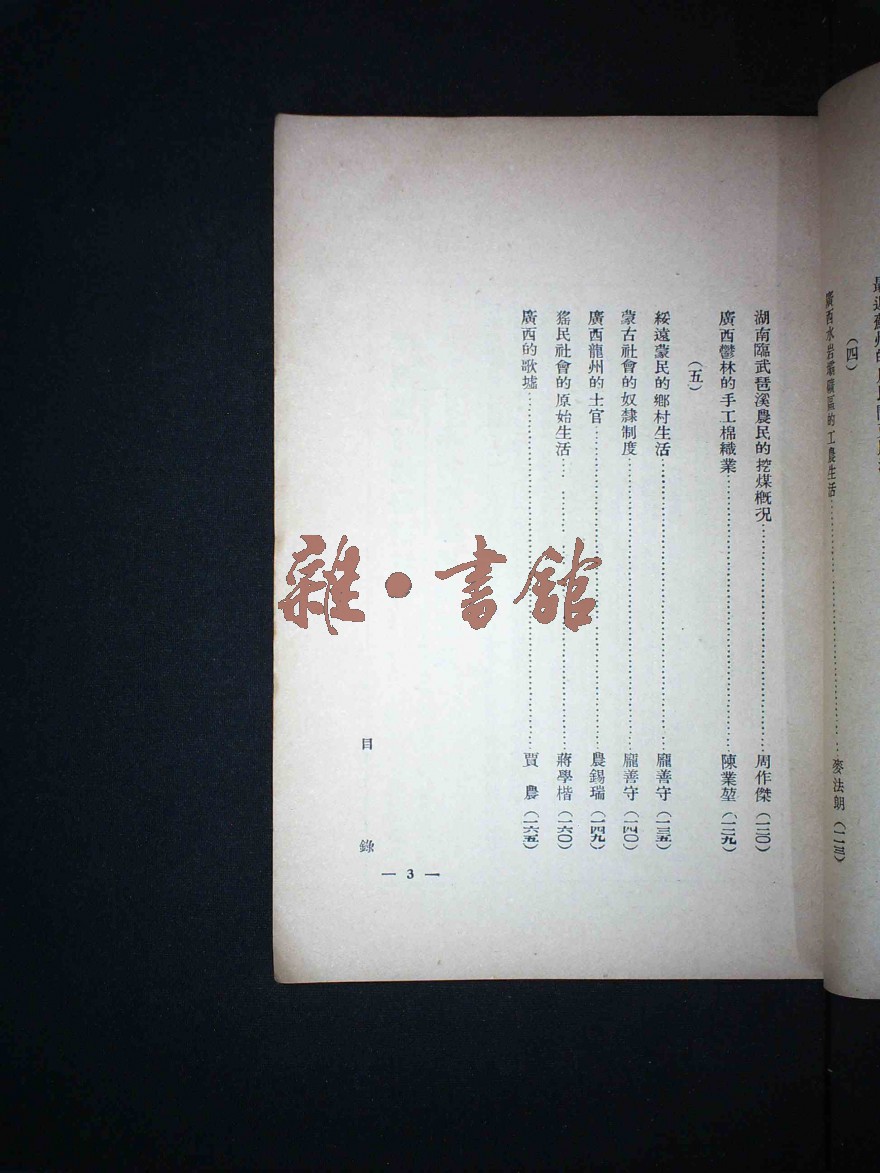 (四)
廣西水岩壩礦區的工農生活……麥法朗(一一三)
湖南臨武琶溪農民的挖煤概况……周作傑(一二〇)
廣西鬱林的手工棉織業……陳業堃(一二九)
(五)
綏遠蒙民的鄉村生活……龐善守(一三五)
蒙古社會的奴隸制度……龐善守(一四〇)
廣西龍州的土官……農錫瑞(一四九)
猺民社會的原始生活……蔣學楷(一六〇)
廣西的歌墟……賈農(一六五)
目錄
— 3 —
雜·書館